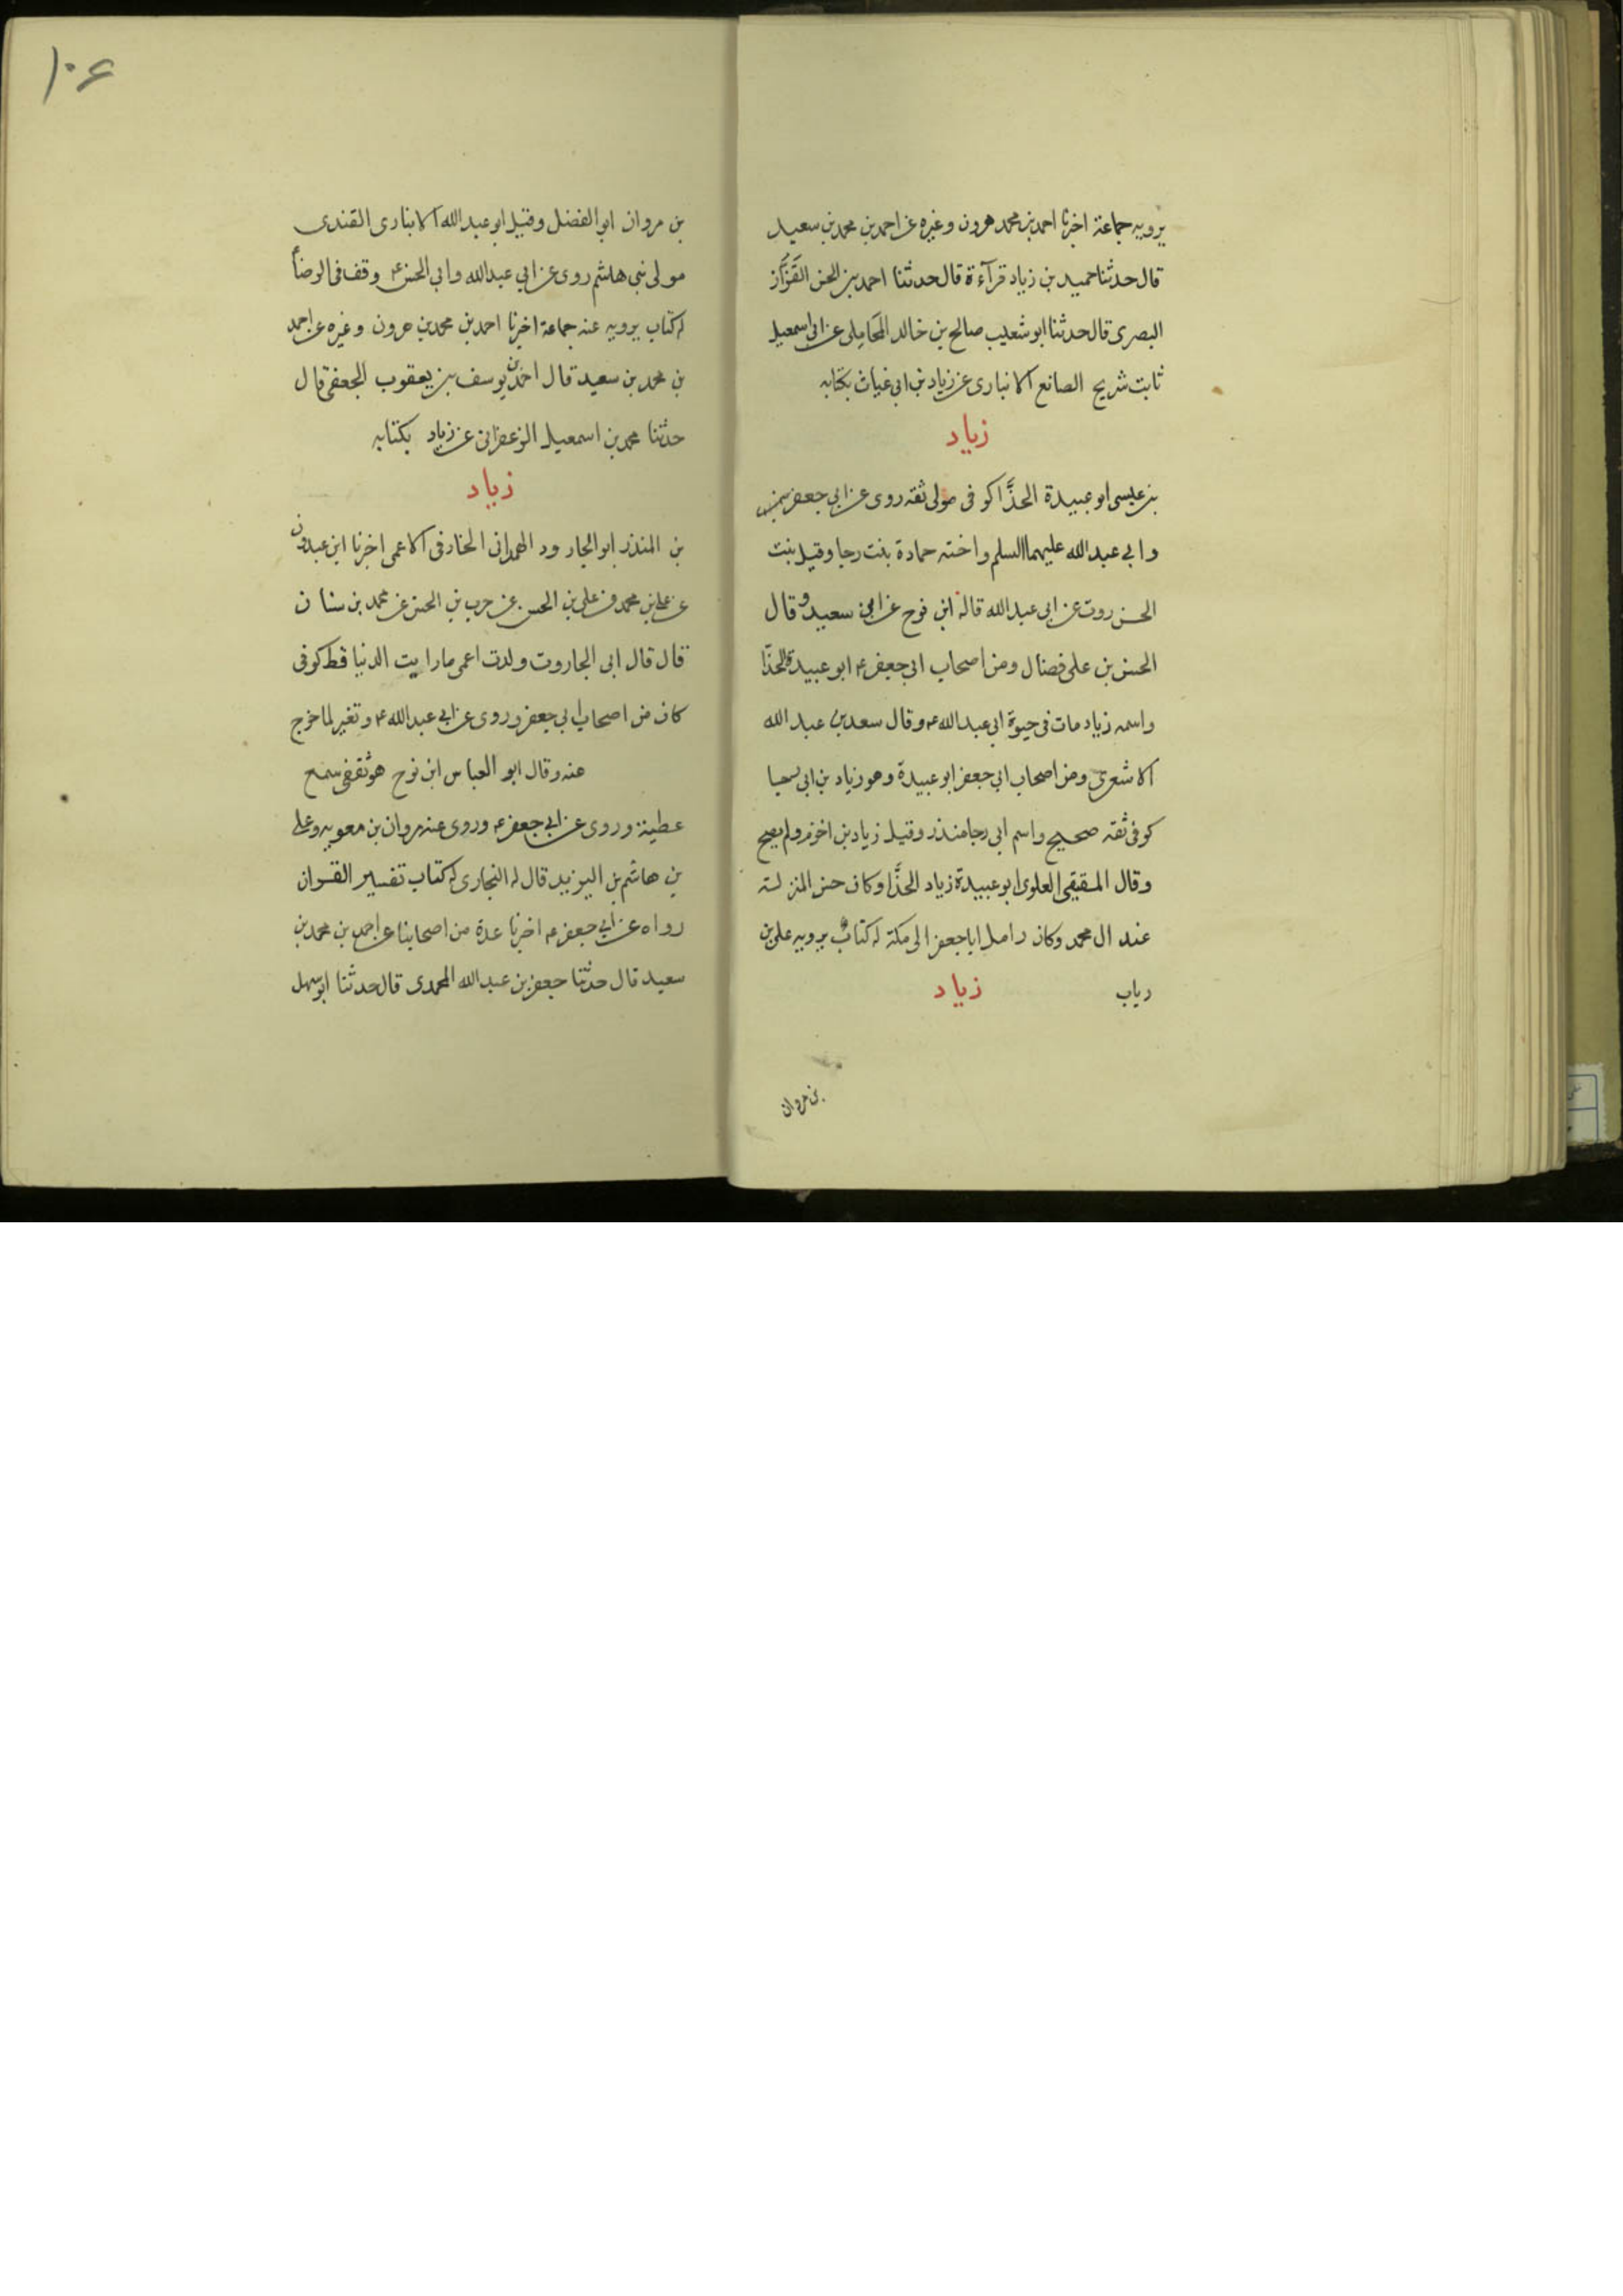 يرويه جماعة اخبرنا احمد بن محمد هرون وغيره عن احمد بن محمد بن سعيد
قال حدثنا حميد بن زياد قرآءة قال حدثنا احمد بن الحسن القَزَّاز
البصرى قال حدثنا ابو شعيب صالح بن خالد المَحَامِلى عن ابى اسمعيل
ثابت شريح الصائغ الانبارى عن زياد بن ابى غياث بكتابه
زياد
بن عيسى ابو عبيدة الحذَّا كوفى مولى ثقه روى عن ابى جعفر
وابى عبد الله عليهما السلم واخته حمادة بنت رجا وقيل بنت
الحسن روت عن ابى عبد الله قاله ابن نوح عن ابن سعيد وقال
الحسن بن على فضال ومن اصحاب ابى جعفر ع ابو عبيدة الحذّا
واسمه زياد مات فى حيوة ابى عبد الله ع وقال سعد بن عبد الله
الاشعرى ومن اصحاب ابى جعفر ابو عبيدة وهو زياد بن ابى
كوفى ثقه صحيح واسم ابى رجا منذر وقيل زياد بن اخزم ولم يصح
وقال العقيقى العلوى ابو عبيدة زياد الحذَّا وكان حسن المنزلته
عند ال محمد وكان زامل ابا جعفر الى مكة له كتابٌ يرويه على بن
رياب زياد
بن مروان
١٠٦
بن مروان ابو الفضل وقيل ابو عبد الله الانبارى القندى
مولى بنى هاشم روى عن ابى عبد الله وابى الحسن ع وقف فى الرضا
له كتاب يرويه عنه جماعة اخبرنا احمد بن محمد بن هرون وغيره عن احمد
بن محمد بن سعيد قال احمد بن يوسف بن يعقوب الجعفى قال
حدثنا محمد بن اسمعيل الزعفرانى عن زياد بكتابه
زياد
بن المنذر ابو الجارود الهمدانى الخارفى الاعمى اخبرنا ابن عبدون
عن على بن محمد عن على بن الحسن عن حرب بن الحسن عن محمد بن سنان
قال قال ابى الجاروت ولدت اعمى ما رايت الدنيا قط كوفى
كان من اصحاب ابى جعفر وروى عن ابى عبد الله ع وتغير لما خرج
عنه وقال ابو العباس ابن نوح هو ثقفى سمع
عطية وروى عن ابى جعفر ع وروى عنه مروان بن معويه وعلى
بن هاشم بن اليزيد قال له البخارى له كتاب تفسير القران
رواه عن ابى جعفر ع اخبرنا عدة من اصحابنا عن احمد بن محمد بن
سعيد قال حدثنا جعفر بن عبد الله المحمدى قال حدثنا ابو سهل